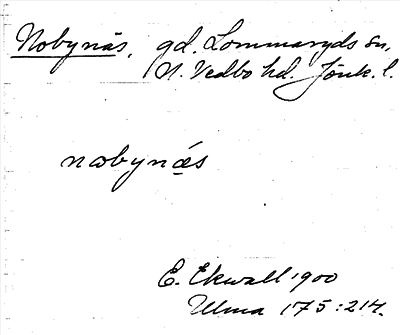 Nobynäs, gd. Lommaryds sn,
N. Vedbo hd. Jönk. l.
nobynäs
E. Ekwall 1900
Ulma 175:214.